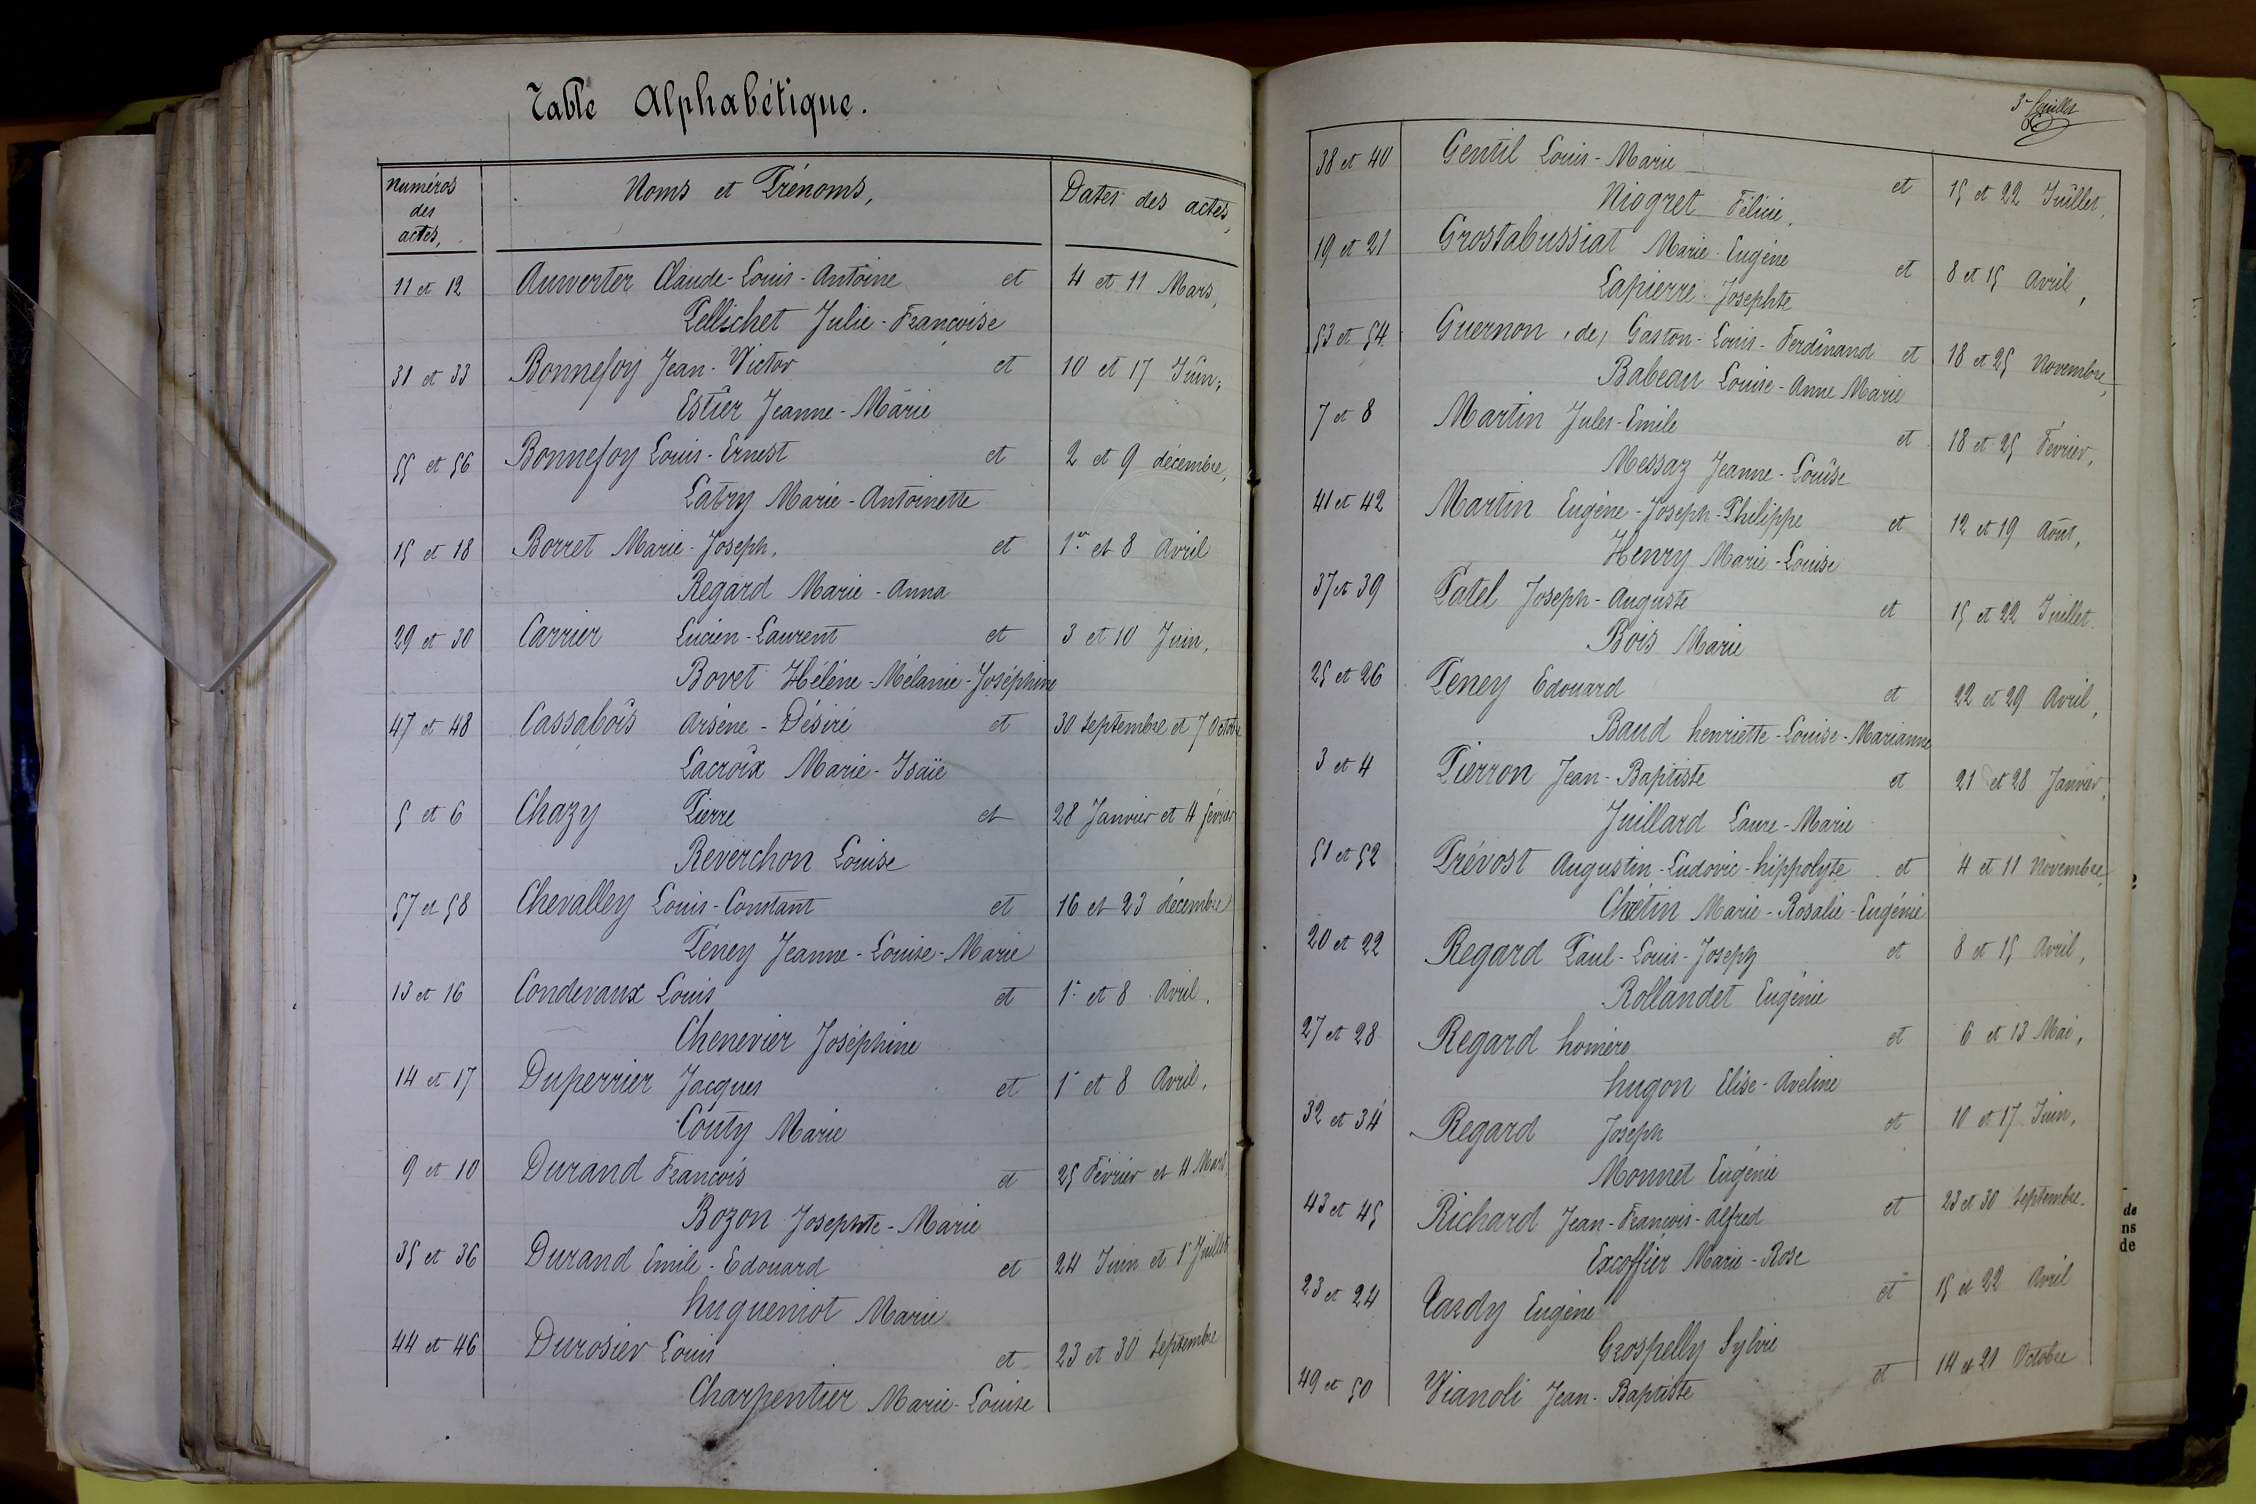 Table Alphabétique.
Numéros des actes, Noms et Prénoms, Dates des actes,
11 et 12 Auverter Claude-Louis-Antoine et 4 et 11 Mars,
Pellischet Julie-Françoise
31 et 33 Bonnefoy Jean-Victor et 10 et 17 Juin,
Estier Jeanne-Marie
55 et 56 Bonnefoy Louis-Ernest et 2 et 9 décembre,
Latry Marie-Antoinette
15 et 18 Borret Marie-Joseph, et 1er et 8 Avril
Regard Marie-Anna
29 et 30 Carrier Lucien-Laurent et 3 et 10 Juin,
Bovet Hélène-Mélanie-Joséphine
47 et 48 Cassabois Arsène-Désiré et 30 Septembre et 7 Octobre
Lacroix Marie-Isaïe
5 et 6 Chazy Pierre et 28 Janvier et 4 février
Reverchon Louise
57 et 58 Chevalley Louis-Constant et 16 et 23 décembre
Peney Jeanne-Louise-Marie
13 et 16 Condevaux Louis et 1er et 8 Avril,
Chenevier Joséphine
14 et 17 Duperrier Jacques et 1er et 8 Avril,
Couty Marie
9 et 10 Durand François et 25 Février et 4 Mars
Bozon Josephte-Marie
35 et 36 Durand Emile-Edouard et 24 Juin et 1er Juillet
hugueniot Marie
44 et 46 Durosier Louis et 23 et 30 Septembre
Charpentier Marie-Louise
3e feuillet
38 et 40 Gentil Louis-Marie et 15 et 22 Juillet,
Niogret Félicie,
19 et 21 Grostabussiat Marie-Eugène et 8 et 15 Avril,
Lapierre Josephte
53 et 54 Guernon (de) Gaston-Louis-Ferdinand et 18 et 25 Novembre,
Babeau Louise-Anne Marie
7 et 8 Martin Jules-Emile et 18 et 25 Février,
Messaz Jeanne-Louise
41 et 42 Martin Eugène-Joseph-Philippe et 12 et 19 Août,
Henry Marie-Louise
37 et 39 Patel Joseph-Auguste et 15 et 22 Juillet
Bois Marie
25 et 26 Peney Edouard et 22 et 29 Avril,
Baud henriette-Louise-Marianne
3 et 4 Pierron Jean-Baptiste et 21 et 28 Janvier,
Juillard Laure-Marie
51 et 52 Prévost Augustin-Ludovic-hippolyte et 4 et 11 Novembre,
Chétin Marie-Rosalie-Eugénie
20 et 22 Regard Paul-Louis-Joseph et 8 et 15 Avril,
Rollandet Eugénie
27 et 28 Regard homère et 6 et 13 Mai,
hugon Elise-Aveline
32 et 34 Regard Joseph et 10 et 17 Juin,
Monnet Eugénie
43 et 45 Richard Jean-François-Alfred et 23 et 30 Septembre
Excoffier Marie-Rose
23 et 24 Tardy Eugène et 15 et 22 Avril
Grospelly Sylvie
49 et 50 Vianoli Jean-Baptiste et 14 et 21 Octobre
de
ns
de